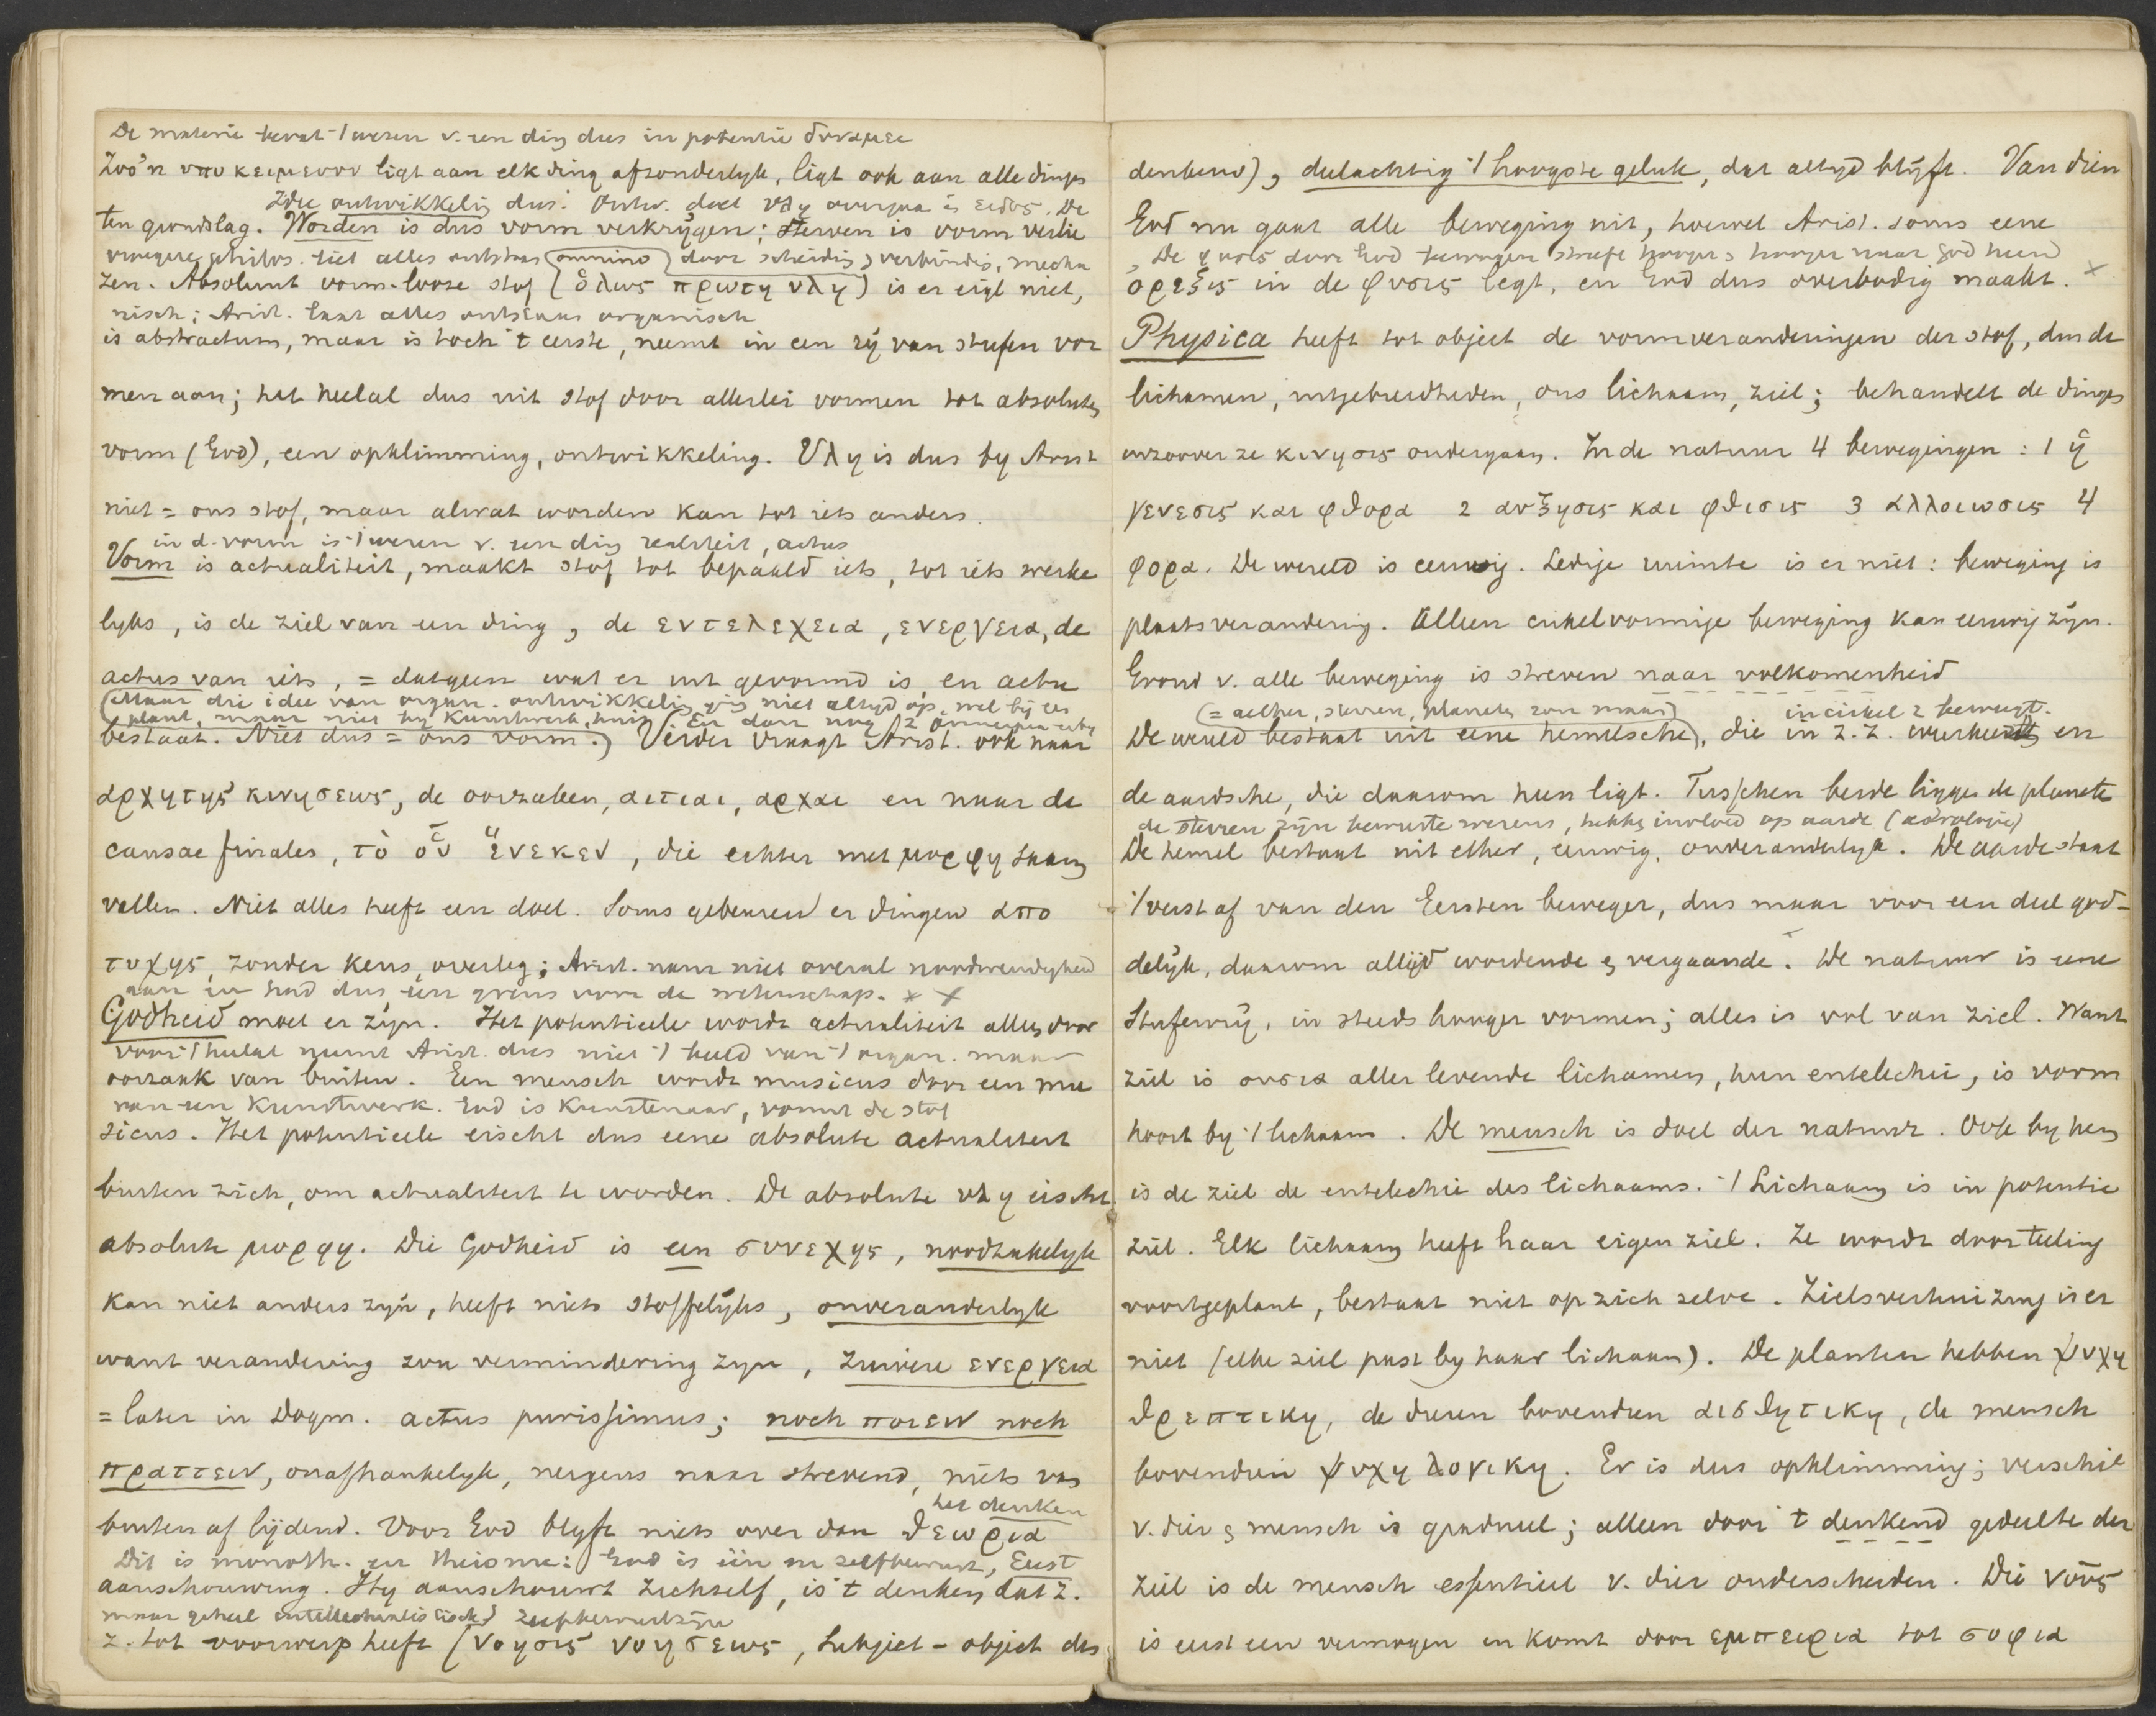 De materie bevat 't wezen v. een ding dus in potentie δυναμει
Zoo'n υποκειμενον ligt aan elk ding afzonderlyk, ligt ook aan alle dinges
Idee ontwikkeling dus. Ontw. doet υλη overgaan in ειδος. De
ten grondslag. Worden is dus vorm verkrijgen; sterven is vorm verlie
vroegere philos. liet alles ontstaan omnino door scheiding & verbinding, mecha
zen. Absoluut vorm-looze stof (ὁλως πρωτη υλη) is er eigl niet,
nisch; Arist. laat alles ontstaan organisch
is abstractum, maar is toch 't eerste, neemt in een rij van stufen vor
men aan; het heelal dus uit stof door allerlei vormen tot absolute
vorm (God), een opklimming, ontwikkeling. Υλη is dus by Arist
niet = ons stof, maar alwat worden kan tot iets anders.
in d. vorm is 't wezen v. een ding realiteit, actus
Vorm is actualiteit, maakt stof tot bepaald iets, tot iets werke
lyks, is de ziel van een ding, de εντελεχεια, ενεργεια, de
actus van iets, = datgeen wat er uit gevormd is en actu
(Maar die idee van organ. ontwikkeling gaat niet altyd op, wel bij een
plant, maar niet by kunstwerk, huis). En dan nog 2
bestaat. Niet dus = ons vorm.) Verder vraagt Arist. ook naar
αρχη της κινησεως, de oorzaken, αιτιαι, αρχαι en naar de
causae finales, τὸ οὗ ἕνεκεν, die echter met μορφη saam
vallen. Niet alles heeft een doel. Soms gebeuren er dingen απο
τυχης, zonder keus, overleg; Arist. nam niet overal noodwendigheid
aan in God dus een grens voor de wetenschap. * x
Godheid moet er zijn. Het potentieele wordt actualiteit alleen door
voor 't heelal neemt Arist. dus niet 't beeld van 't organ. maar
oorzaak van buiten. Een mensch wordt musicus door een mu
van een kunstwerk. God is kunstenaar, vormt de stof
sicus. Het potentieele eischt dus eene absolute actualiteit
buiten zich, om actualiteit te worden. De absolute υλη eischt
absolute μορφη. Die Godheid is een συνεχης, noodzakelyk
kan niet anders zijn, heeft niets stoffelijks, onveranderlyk
want verandering zou vermindering zyn, zuivere ενεργεια
= later in Dogm. actus purissimus; noch ποιειν noch
πραττειν, onafhankelyk, nergens naar strevend, niets van
het denken
buiten af lijdend. Voor God blyft niets over dan θεωρια
Dit is monoth. en theisme: God is één en zelfbewust, Eerst
aanschouwing. Hy aanschouwt zichself, is 't denken dat z.
maar geheel intellectualistisch zelfbewustzijn
z. tot voorwerp heeft (νοησις νοησεως, Subject - object des
denkens), deelachtig 't hoogste geluk, dat altyd blijft. Van dien
God nu gaat alle beweging uit, hoewel Arist. soms eene
De φυσις door God bewogen streeft hooger & hooger naar God heen
ορεξις in de φυσις legt, en God dus overbodig maakt. x
Physica heeft tot object de vormveranderingen der stof, dus de
lichamen, uitgebreidheden, ons lichaam, ziel; behandelt de dinges
inzoover ze κινησις ondergaan. In de natuur 4 bewegingen: 1 ἡ
γενεσις και φθορα 2 αυξησις και φθισις 3 αλλοιωσις 4
φορα. De wereld is eeuwig. Ledige ruimte is er niet: beweging is
plaatsverandering. Alleen cirkelvormige beweging kan eeuwig zijn.
Grond v. alle beweging is streven naar volkomenheid
(= aether, sterren, planeten zon maan) in cirkel z beweegt.
De wereld bestaat uit eene hemelsche, die in z.z. en
de aardsche, die daarom heen ligt. Tusschen beide liggen de planete
de sterren zijn bewuste wezens, hebben invloed op aarde (astrologie)
De hemel bestaat uit ether, eeuwig, onveranderlyk. De aarde staat
't verst af van den Eersten beweger, dus maar voor een deel god-
delijk, daarom altijd wordende & vergaande. De natuur is eene
Stufenrij, in steeds hooger vormen; alles is vol van ziel. Want
ziel is ουσια aller levende lichamen, hun entelechie, is vorm
hoort by 't lichaam. De mensch is doel der natuur. Ook by hem
is de ziel de entelechie des lichaams. 't Lichaam is in potentie
ziel. Elk lichaam heeft haar eigen ziel. Ze wordt door teeling
voortgeplant, bestaat niet op zich zelve. Zielsverhuizing is er
niet (elke ziel past by haar lichaam). De planten hebben ψυχη
θρεπτικη, de dieren bovendien αισθητικη, de mensch
bovendien ψυχη λογικη. Er is dus opklimming; verschil
v. dier & mensch is gradueel; alleen door 't denkend gedeelte der
ziel is de mensch essentieel v. dier onderscheiden. Die νους
is eerst een vermogen en komt door εμπειρια tot σοφια